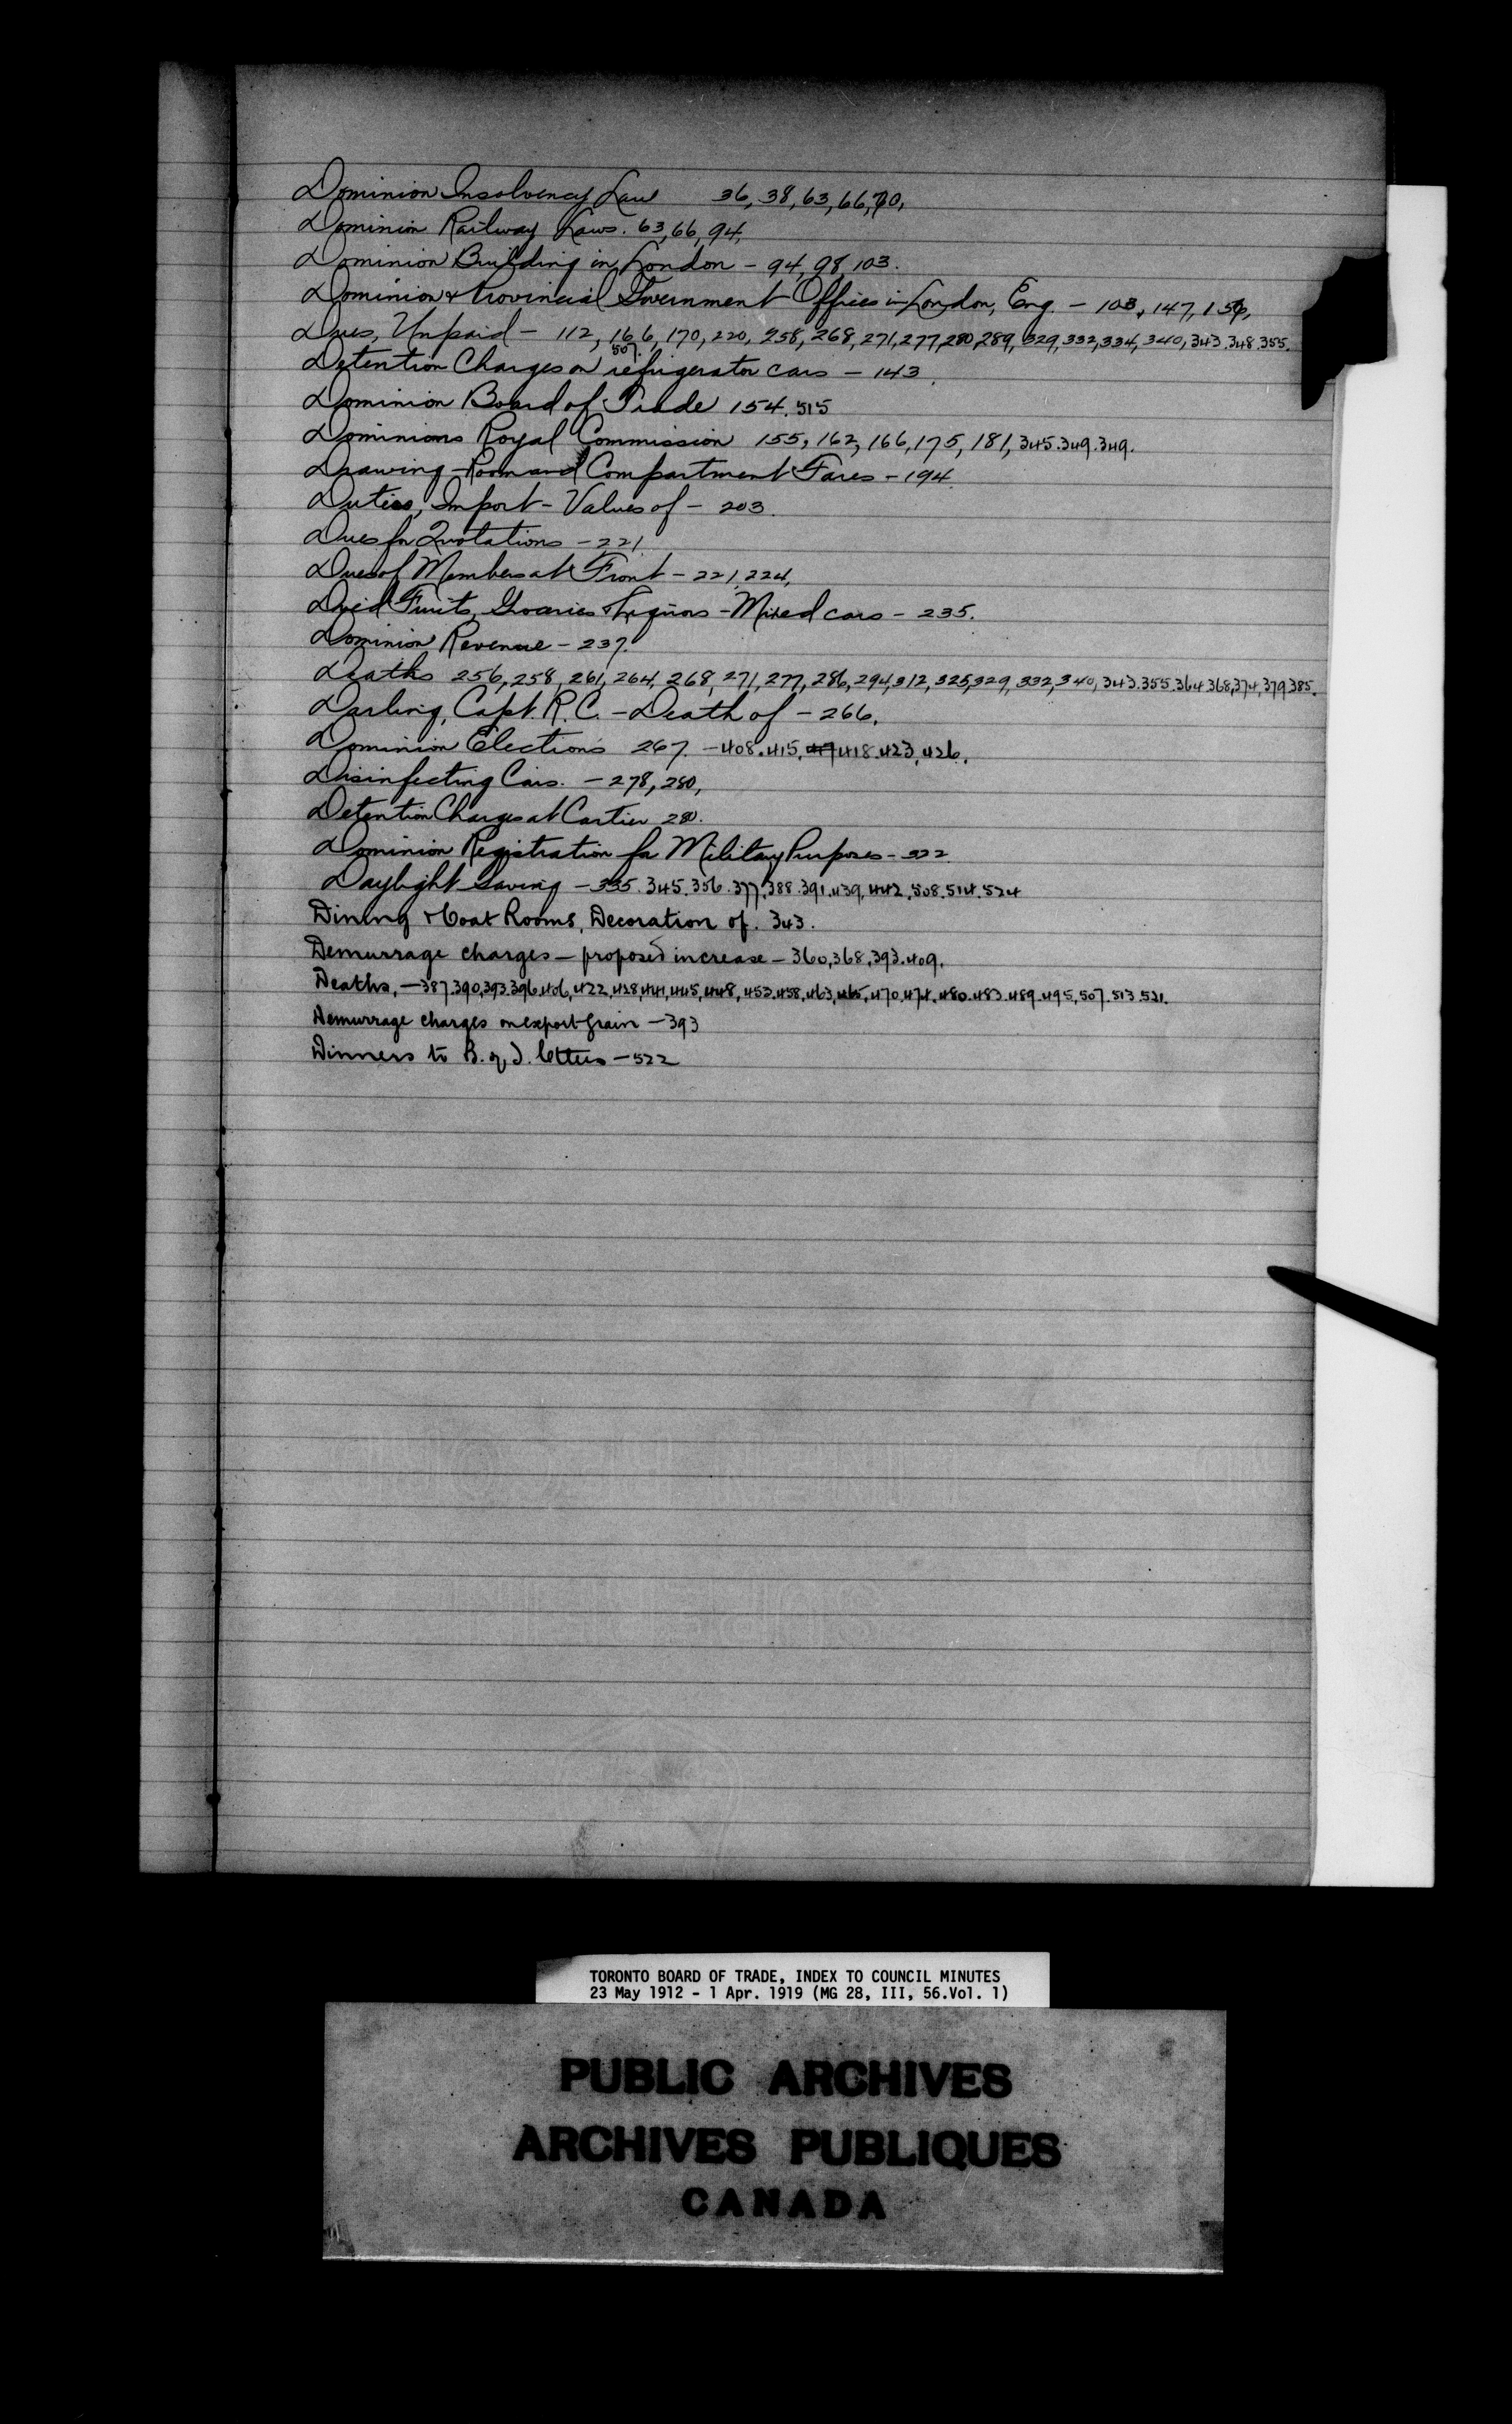 Dominion Insolvency Law 36, 38, 63, 66, 70,
Dominion Railway Laws. 63, 66, 94,
Dominion Building in London - 94, 98, 103.
Dominion & Provincial Government Offices in London, Eng. - 103, 147, 156,
Dues, Unpaid - 112, 166, 170, 220, 258, 268, 271, 277, 280, 289, 329, 332, 334, 340, 343. 348. 355.
507.
Detention Charges on refrigerator cars - 143.
Dominion Board of Trade 154. 515
Dominions Royal Commission 155, 162, 166, 175, 181, 345. 349. 349.
Drawing-Room and Compartment Fares - 194.
Duties, Import - Values of - 203.
Dues for Quotations - 221.
Dues of Members at Front - 221, 224,
Dried Fruits, Groceries & Liquors - Mixed cars - 235.
Dominion Revenue - 237.
Deaths 256, 258, 261, 264, 268, 271, 277, 286, 294, 312, 325, 329, 332, 340, 343. 355. 364. 368, 374, 379, 385.
Darling, Capt. R. C. - Death of - 266.
Dominion Elections 267. - 408. 415, 418. 423, 426.
Disinfecting Cars. - 278, 280,
Detention Charges at Cartier 280.
Dominion Registration for Military Purposes - 322
Daylight Saving - 335. 345. 356. 377. 388. 391. 439, 442. 508. 514. 524
Dining & Coat Rooms, Decoration of. 343.
Demurrage charges - proposed increase - 360, 368, 393. 409.
Deaths, - 387. 390, 393. 396, 406, 422, 428, 441, 445, 448, 453. 458, 463, 465, 470, 474. 480. 483. 489. 495, 507. 513. 521.
Demurrage charges on export grain - 393
Dinners to B. of T. - 522
TORONTO BOARD OF TRADE, INDEX TO COUNCIL MINUTES
23 May 1912 - 1 Apr. 1919 (MG 28, III, 56.Vol. 1)
PUBLIC ARCHIVES
ARCHIVES PUBLIQUES
CANADA